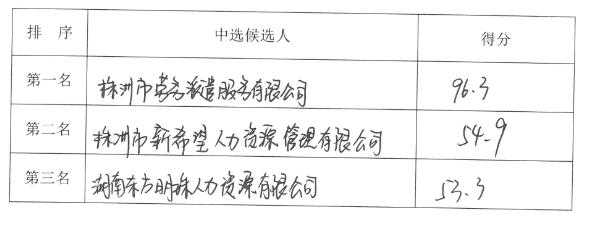 排 序 中选候选人 得分
第一名 株洲市劳务派遣服务有限公司 96.3
第二名 株洲市新希望人力资源管理有限公司 54.9
第三名 湖南东方明珠人力资源有限公司 53.3